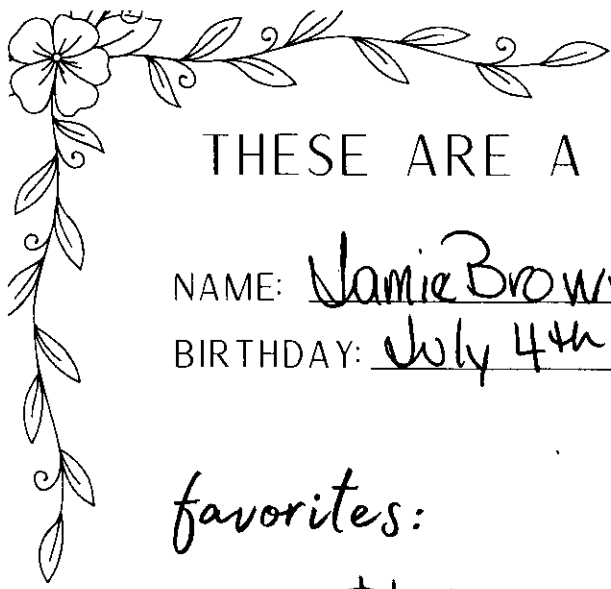 THESE ARE A
NAME: Jamie Brow
BIRTHDAY: July 4th
favorites: